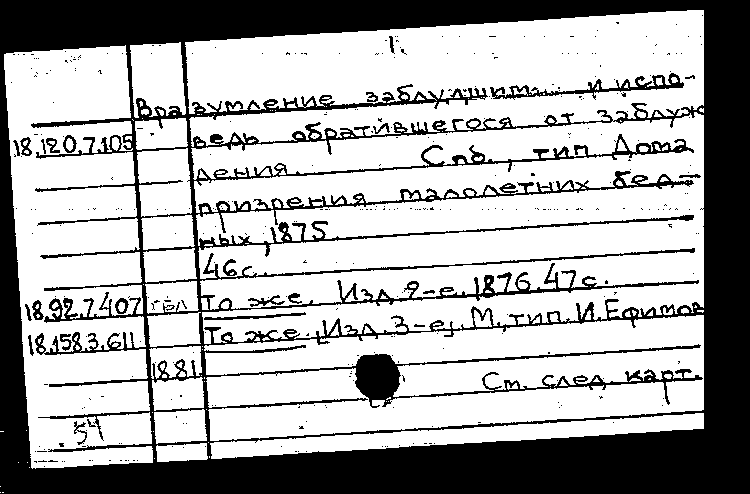 1.
Вразумление заблудшим и испо-
18.120.7.105 ведь обратившегося от заблуж
дения. Спб., тип Дома
призрения малолетних бед-
ных, 1875.
46с.
18.92.7.407 ГБЛ То же. Изд. 2-е. 1876. 47с.
18.158.3.611 То же. [Изд. 3-е]. М., тип. И. Ефимов
1881.
См. след. карт.
54